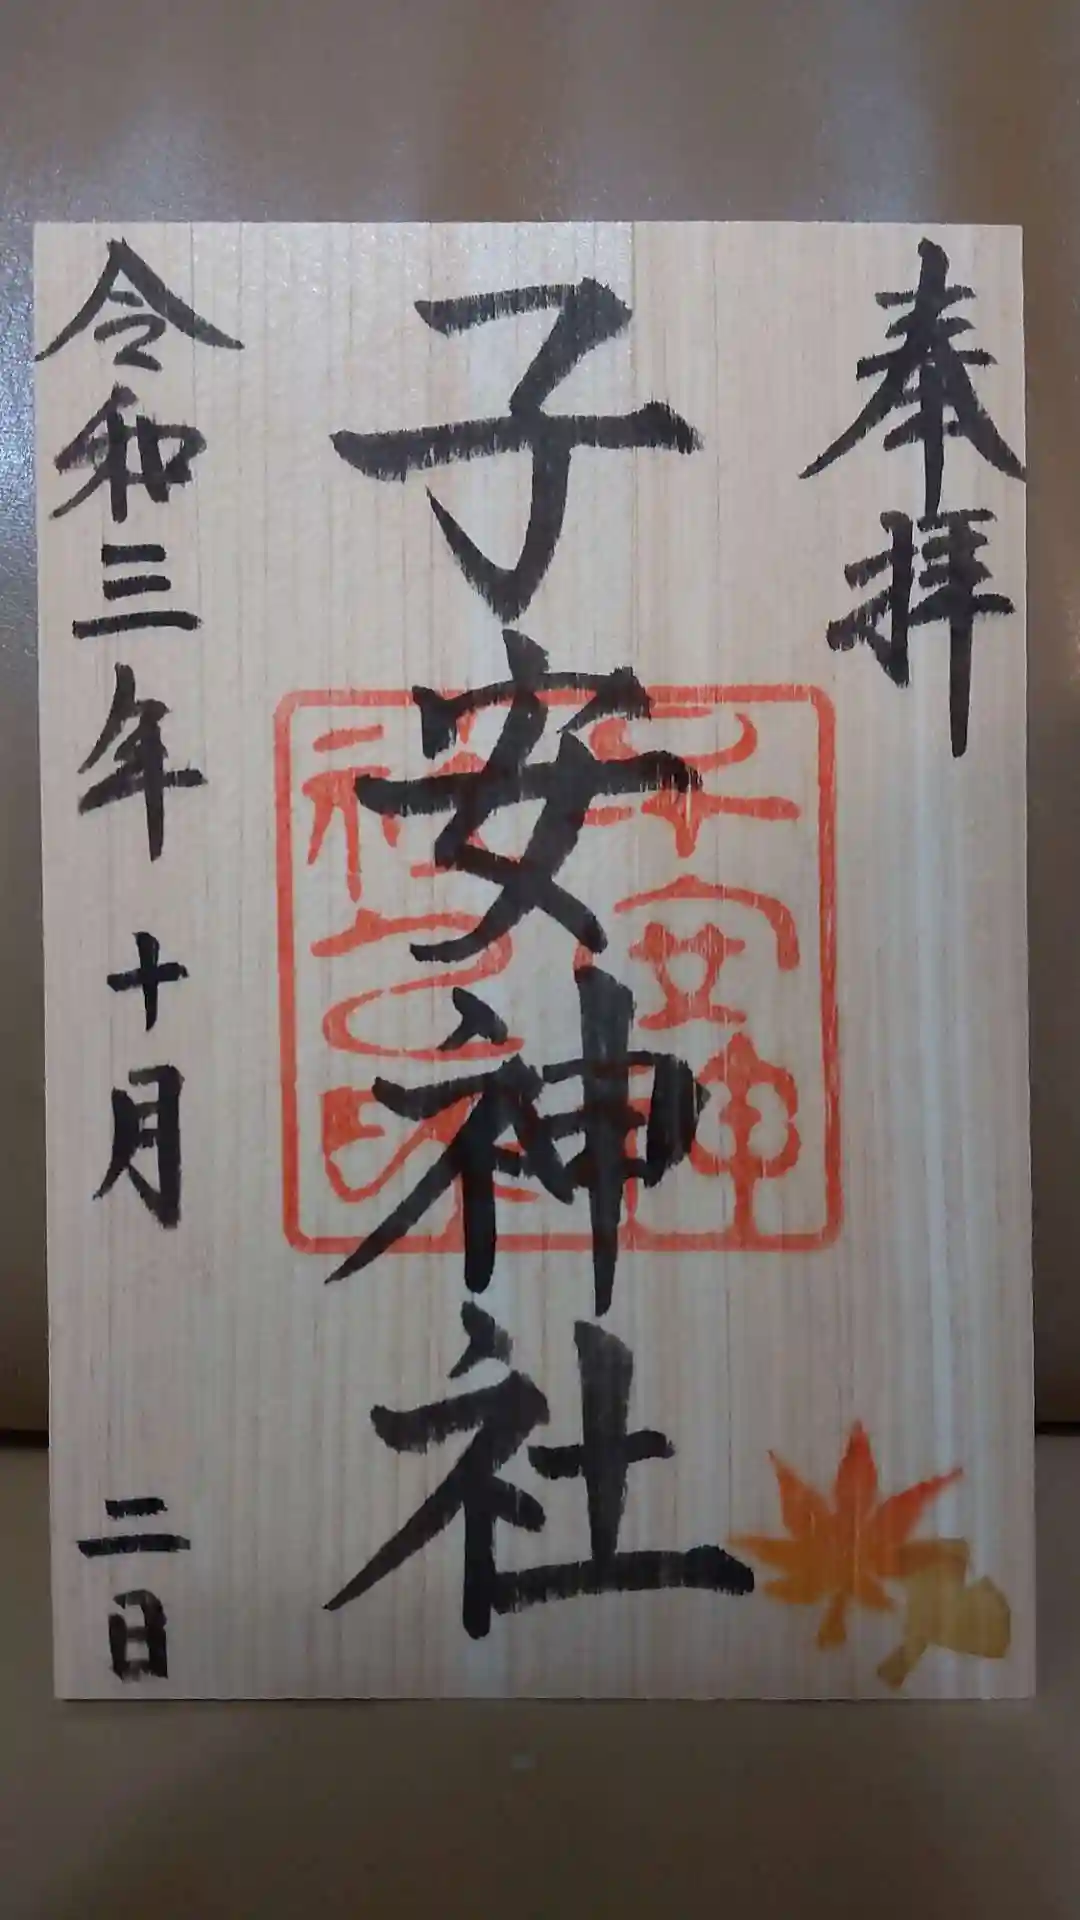 奉拝
子安神社
子安神
社之印
令和三年十月二日